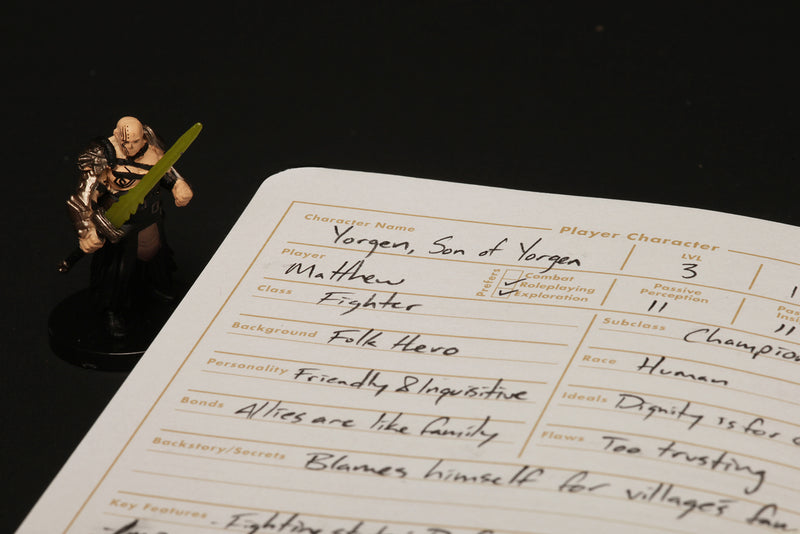 Player Character
Character Name
Yorgen, Son of Yorgen
LVL
3
Player
Matthew
Prefers
Combat
Roleplaying
Exploration
Passive
Perception
11
11
Class
Fighter
Subclass
Background
Folk Hero
Race
Human
Personality
Friendly & Inquisitive
Ideals
Dignity is for
Bonds
Allies are like family
Flaws
Too trusting
Backstory/Secrets
Blames himself for village's
Key Features